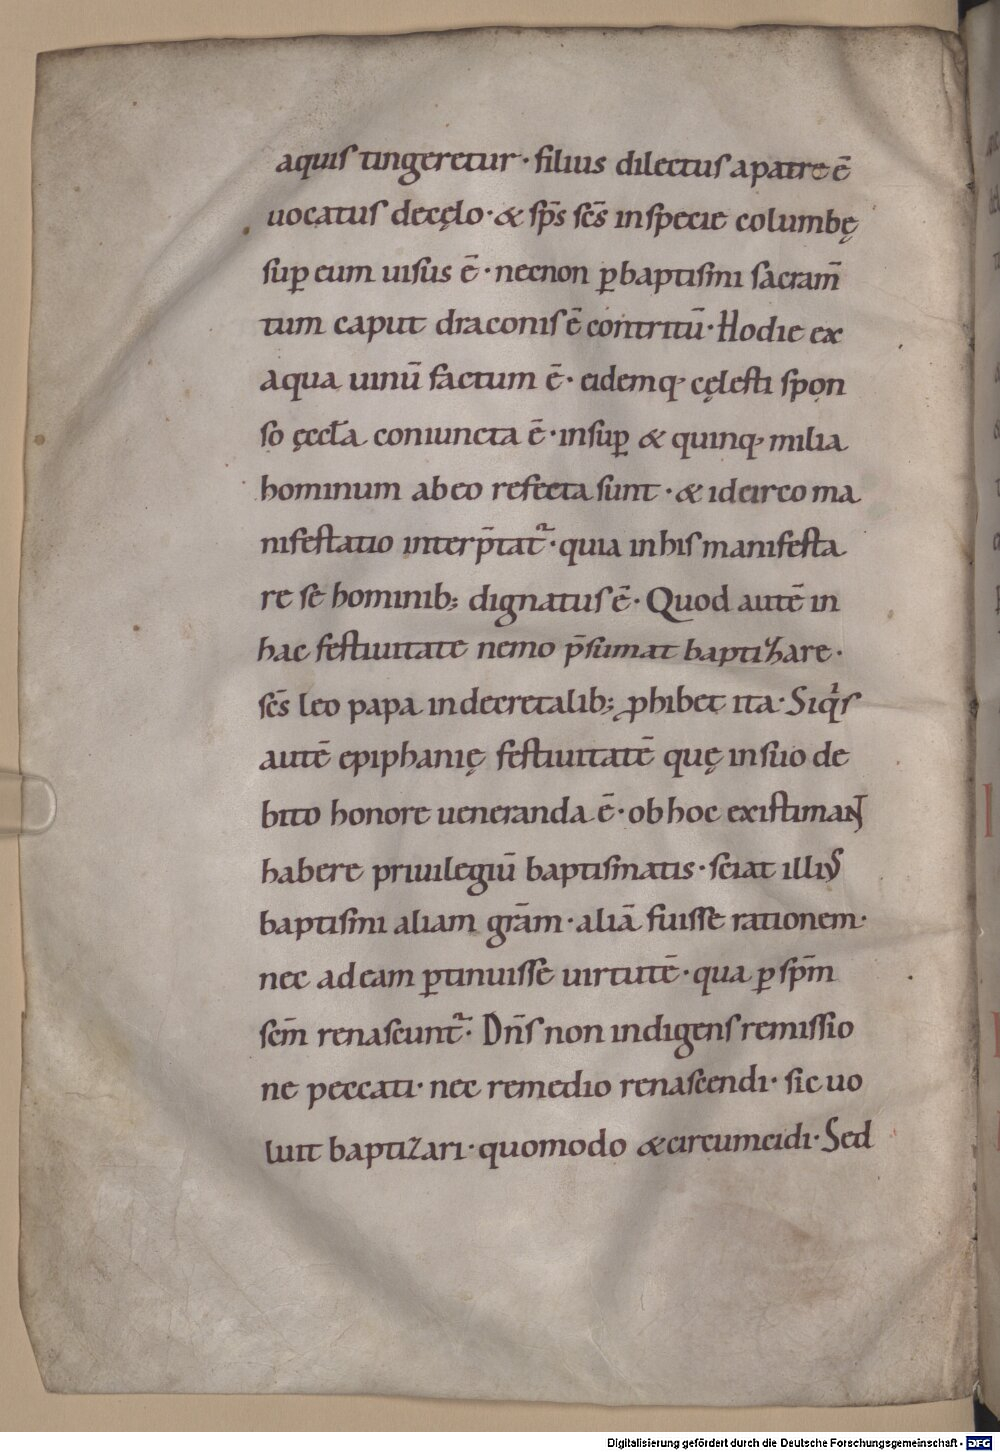 aquis tingeretur · filius dilectus a patre ē
uocatus de cęlo · & sp̄s sc̄s in specie columbę
sup̱ eum uisus ē · necnon p̱ baptismi sacram̄
tum caput draconis ē contritū · Hodie ex
aqua uinū factum ē · eidemq· cęlesti spon
so ęccła coniuncta ē · insup̱ & quinq· milia
hominum ab eo refecta sunt · & idcirco ma
nifestatio interp̄tat᷑ · quia in his manifesta
re se hominib; dignatus ē · Quod autē in
hac festiuitate nemo p̄sumat baptizare ·
sc̄s leo papa in decretalib; ꝓhibet ita · Siqͥs
autē epiphanię festiuitatē quę in suo de
bito honore ueneranda ē · ob hoc existimaɴᴛ
habere priuilegiū baptismatis · sciat illiuˢ
baptismi aliam gr̄am · aliā fuisse rationem ·
nec ad eam p̱tinuisse uirtutē · qua p̱ sp̄m
sc̄m renascunt᷑ · Dn̄s non indigens remissio
ne peccati · nec remedio renascendi · sic uo
luit baptizari · quomodo & circumcidi · Sed
Digitalisierung gefördert durch die Deutsche Forschungsgemeinschaft - DFG